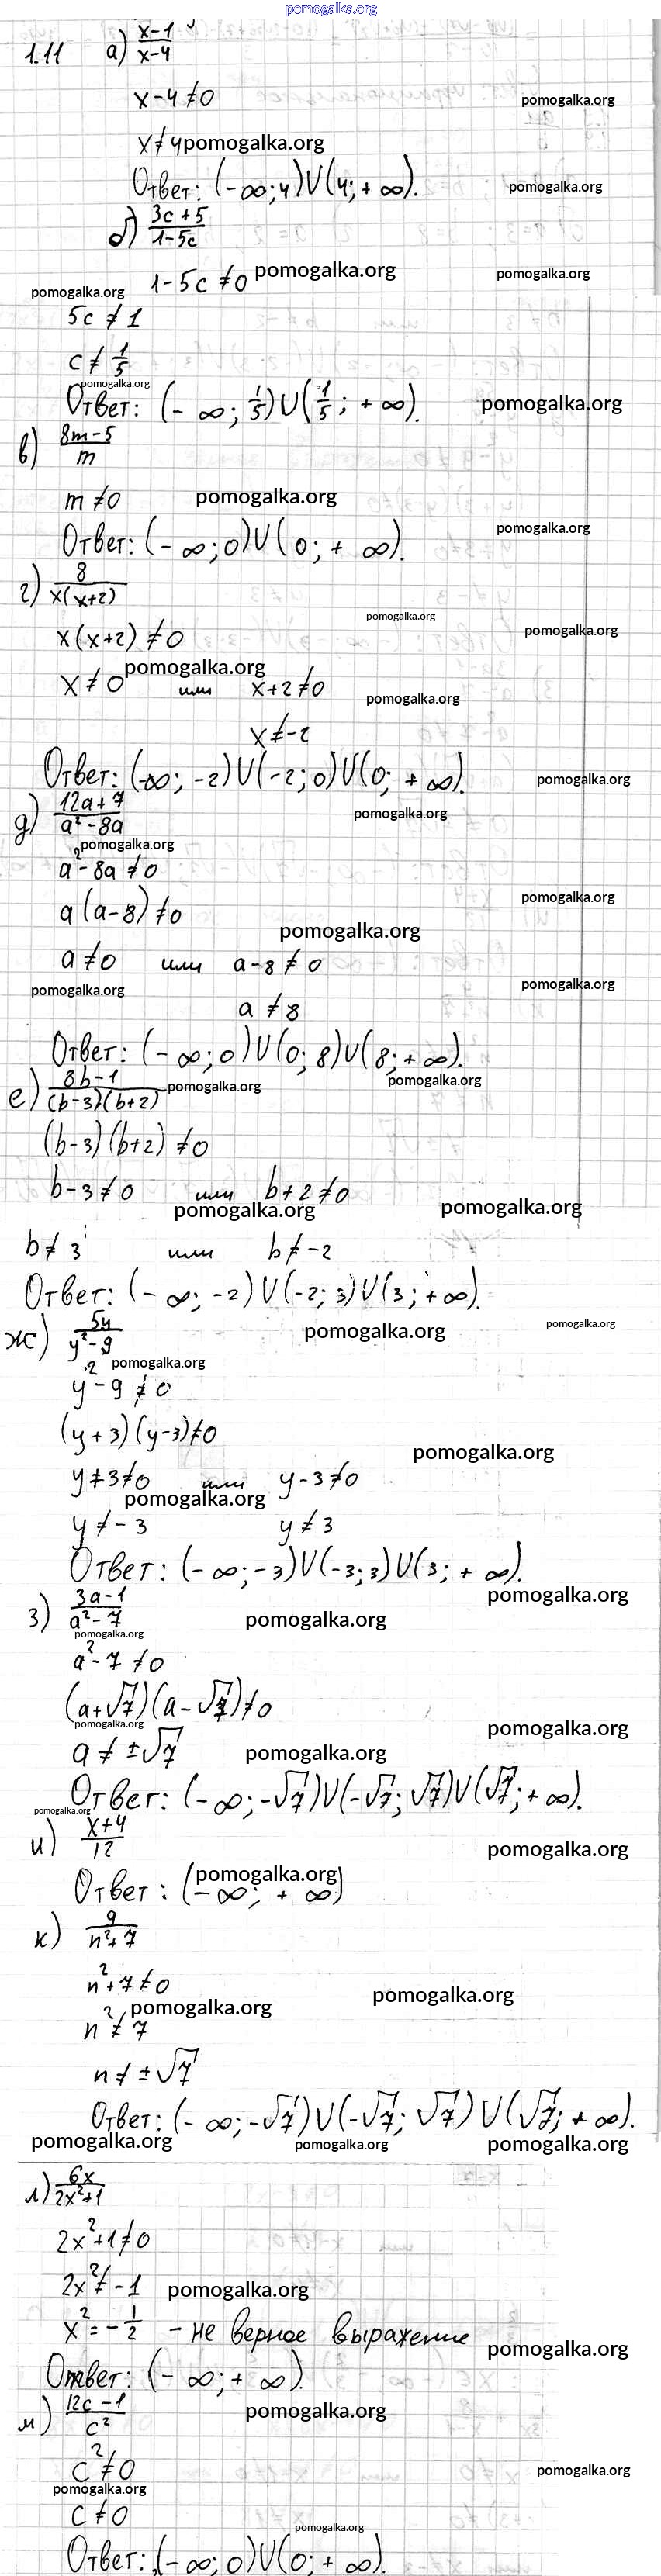 pomogalka.org
1.11 а) x-1/x-4
x-4≠0 pomogalka.org
x≠4 pomogalka.org
Ответ: (-∞;4)∪(4;+∞). pomogalka.org
б) 3c+5/1-5c
1-5c≠0 pomogalka.org pomogalka.org
pomogalka.org
5c≠1
c≠1/5
pomogalka.org
Ответ: (-∞; 1/5)∪(1/5; +∞). pomogalka.org
в) 8m-5/m
m≠0 pomogalka.org
Ответ: (-∞;0)∪(0;+∞). pomogalka.org
г) 8/x(x+2)
pomogalka.org
x(x+2)≠0 pomogalka.org
pomogalka.org
x≠0 или x+2≠0 pomogalka.org
x≠-2
Ответ: (-∞; -2)∪(-2;0)∪(0; +∞). pomogalka.org
д) 12a+7/a²-8a pomogalka.org
pomogalka.org
a²-8a≠0
a(a-8)≠0 pomogalka.org
pomogalka.org
a≠0 или a-8≠0
pomogalka.org pomogalka.org
a≠8
Ответ: (-∞;0)∪(0; 8)∪(8;+∞).
е) 8b-1/(b-3)(b+2) pomogalka.org pomogalka.org
(b-3)(b+2)≠0
b-3≠0 или b+2≠0
pomogalka.org pomogalka.org
b≠3 или b≠-2
Ответ: (-∞; -2)∪(-2; 3)∪(3; +∞).
ж) 5y/y²-9 pomogalka.org pomogalka.org
pomogalka.org
y²-9≠0
(y+3)(y-3)≠0
pomogalka.org
y+3≠0 или y-3≠0
pomogalka.org
y≠-3 y≠3
Ответ: (-∞;-3)∪(-3;3)∪(3; +∞).
pomogalka.org
з) 3a-1/a²-7 pomogalka.org
pomogalka.org
a²-7≠0
(a+√7)(a-√7)≠0
pomogalka.org pomogalka.org
a≠±√7 pomogalka.org
Ответ: (-∞;-√7)∪(-√7; √7)∪(√7;+∞).
pomogalka.org
и) x+4/12 pomogalka.org
pomogalka.org
Ответ: (-∞; +∞)
к) 9/n²+7
n²+7≠0 pomogalka.org
pomogalka.org
n²≠7
n≠±√7
Ответ: (-∞;-√7)∪(-√7; √7)∪(√7; +∞).
pomogalka.org pomogalka.org pomogalka.org
л) 6x/2x²+1
2x²+1≠0
2x²≠-1 pomogalka.org
x²=-1/2 - не верное выражение
pomogalka.org
Ответ: (-∞;+∞).
м) 12c-1/c² pomogalka.org
c²≠0 pomogalka.org
pomogalka.org
c≠0
pomogalka.org
Ответ: (-∞;0)∪(0;+∞).